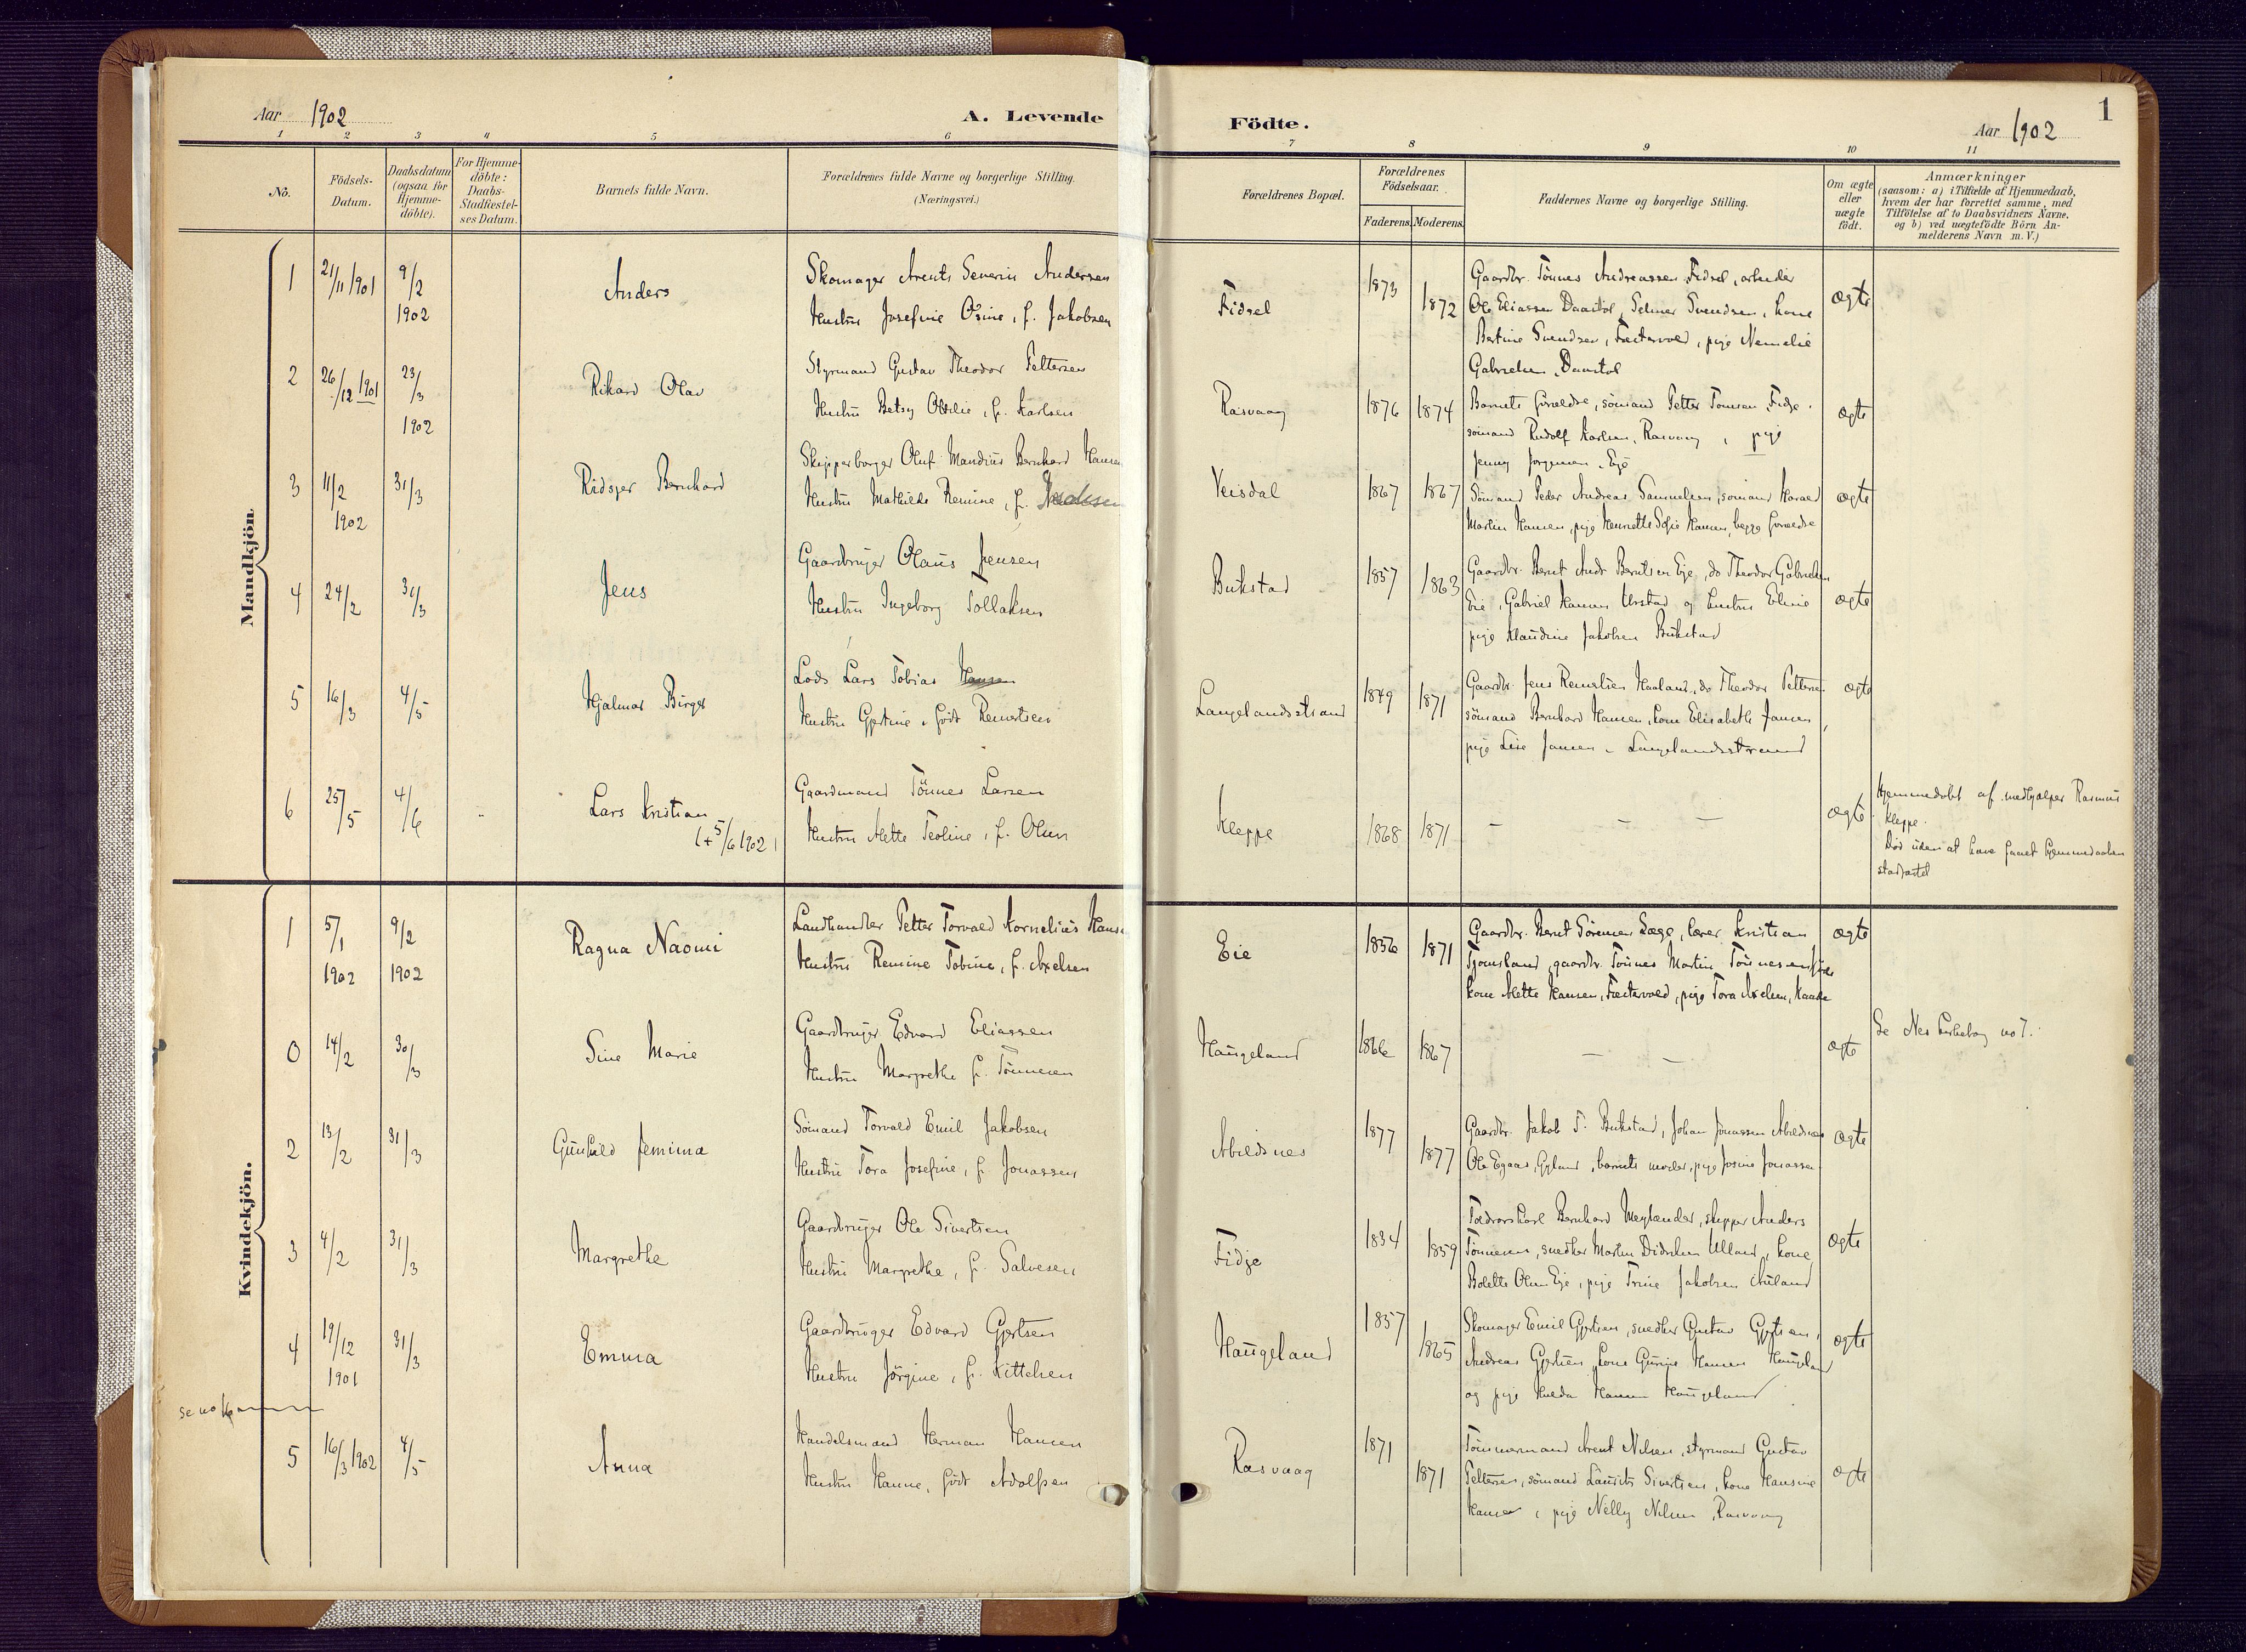 Aar 1902
A. Levende
1 2 3 4 5 6
No.
Födsels-
Datum.
Daabsdatum
(ogsaa for
Hjemme-
döbte).
For Hjemme-
döbte:
Daabs-
Stadfæstel-
ses Datum.
Barnets fulde Navn.
Forældrenes fulde Navne og borgerlige Stilling.
(Næringsvei.)
Mandkjön.
1 21/11 1901 9/2 1902 Anders
Skomager Arents Severin Andersen
Hustru Josefine Osine, f. Jakobsen
2 26/12 1901 23/3 1902 Rikard Olav
Styrmand Gustav Theodor Pettersen
Hustru Betsy Otilie, f. Karlsen
3 11/2 1902 31/3 Ridsjer Bernhard
Skipperborger Oluf Mandius Bernhard Hansen
Hustru Mathilde Remine, f.
4 24/2 31/3 Jens
Gaardbruger Olaus Jensen
Hustru Ingeborg Tollaksen
5 16/3 4/5 Hjalmar Birger
Lods Lars Tobias Hansen
Hustru Gjertine, født Reinertsen
6 25/5 4/6 Lars Kristian
(+ 5/6 1902)
Gaardmand Tönnes Larsen
Hustru Mette Teoline, f. Olsen
Kvindekjön.
1 5/1 1902 9/2 1902 Ragna Naomi
Landhandler Petter Torvald Kornelius Hansen
Hustru Remine Tobine, f. Axelsen
0 14/2 30/3 Sine Marie
Gaardbruger Edvard Eliassen
Hustru Margrethe f. Tönnesen
2 13/2 31/3 Gunhild Jemima
Sömand Torvald Emil Jakobsen
Hustru Tora Josefine, f. Jonassen
3 4/2 31/3 Margrethe
Gaardbruger Ole Sivertsen
Hustru Margrethe, f. Salvesen
4 19/12 1901 31/3 Emma
Gaardbruger Edvard Gjertsen
Hustru Jörgine, f. Kittelsen
se no 16
5 16/3 1902 4/5 Anna
Handelsmand Herman Hansen
Hustru Hanne, født Adolfsen
Födte.
Aar 1902
1
7 8 9 10 11
Forældrenes Bopæl.
Forældrenes
Födselsaar.
Faderens. Moderens.
Faddernes Navne og borgerlige Stilling.
Om ægte
eller
uægte
födt.
Anmærkninger
(saasom: a) i Tilfælde af Hjemmedaab,
hvem der har forrettet samme, med
Tilföielse af to Daabsvidners Navne,
og b) ved uægtefödte Börn An-
melderens Navn m. V.)
Fidsel 1873 1872 ægte
Gaardbr. Tönnes Andreassen Fidsel, arbeider
Ole Eliassen Daastøl, Selmer Svendsen, kone
Bertine Svendsen, pige
Gabrielsen Daastøl
Rasvaag 1876 1874 ægte
Barnets forældre, sömand Petter Tomsen Fidje
sömand Rudolf Karlsen, Rasvaag, pige
Jenny Jorgensen Eje
Veisdal 1867 1867 ægte
Sömand Peder Andreas Samuelsen, sömand Harald
Martin Hansen, pige Henriette Sofie Hansen, begge forældre
Bukstad 1857 1863 ægte
Gaardbr. Bernt Andr Berntsen Eje, do Theodor Gabrielsen
Eie, Gabriel Hansen Urstad og hustru Eline
pige Klaudine Jakobsen Bukstad
Langelandsstrand 1849 1871 ægte
Gaardbr. Jens Haaland, do Theodor Pettersen
sömand Bernhard Hansen, kone Elisabeth Jansen
pige Lise Jansen Langelandsstrand
Kleppe 1868 1871 — — — ægte
Hjemmedøbt af medhjælper Rasmus
Kleppe.
Død uden at have faaet hjemmedaaben
stadfæstet
Eie 1856 1871 ægte
Gaardbr. Bernt Sörensen Læge, lærer Kristian
Tjomsland, gaardbr. Tönnes Martin Tönnesen
kone Mette Hansen, pige Tora Axelsen
Haugeland 1866 1867 — — ægte
Se Nes kirkebog no 7.
Abildsnes 1877 1877 ægte
Gaardbr. Jakob T. Bukstad, Johan Jonassen Abildsnes
Ole Egaas, Gyland, barnets moder, pige Josine Jonassen
Fidje 1834 1859 ægte
Bernhard Meylænder, skipper Anders
Tönnesen, snedker Morten Didriksen Ulland, kone
Bolette Olsen Eje, pige Trine Jakobsen Auland
Haugeland 1857 1865 ægte
Skomager Emil Gjertsen, snedker Gustav Gjertsen,
Andreas Gjertsen, kone Gurine Hansen Haugeland
og pige Hulda Hansen Haugeland
Rasvaag 1871 1871 ægte
Tömmermand Arent Nilsen, styrmand Gustav
Pettersen, sömand Lauritz Sivertsen, kone Hansine
Hansen, pige Nelly Nilsen, Rasvaag